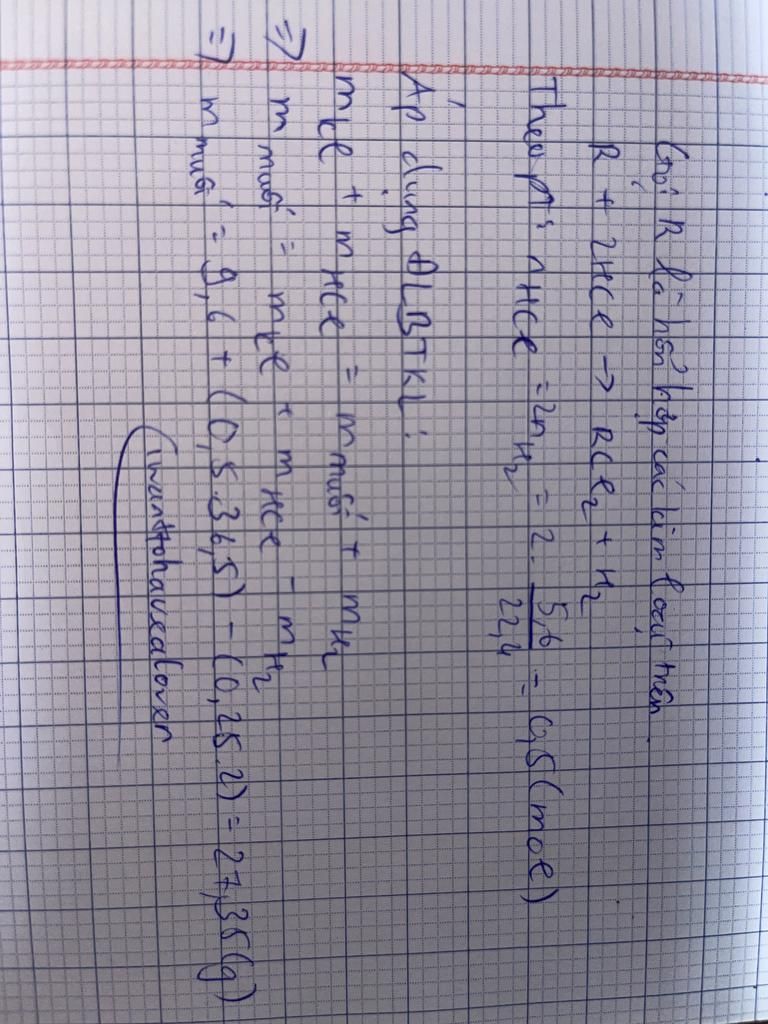 Gọi R là hỗn hợp các kim loại trên
R + 2HCl → RCl₂ + H₂
Theo pt: nHCl = 2nH₂ = 2. 5,6/22,4 = 0,5 (mol)
Áp dụng ĐLBTKL:
mkl + mHCl = mmuối + mH₂
⇒ mmuối = mkl + mHCl - mH₂
⇒ mmuối = 9,6 + (0,5.36,5) - (0,25.2) = 27,35 (g)
iwanttohavealover